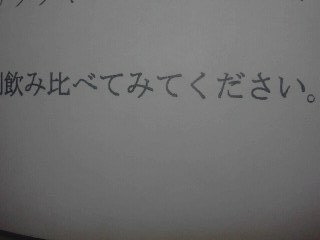 飲み比べてみてください。